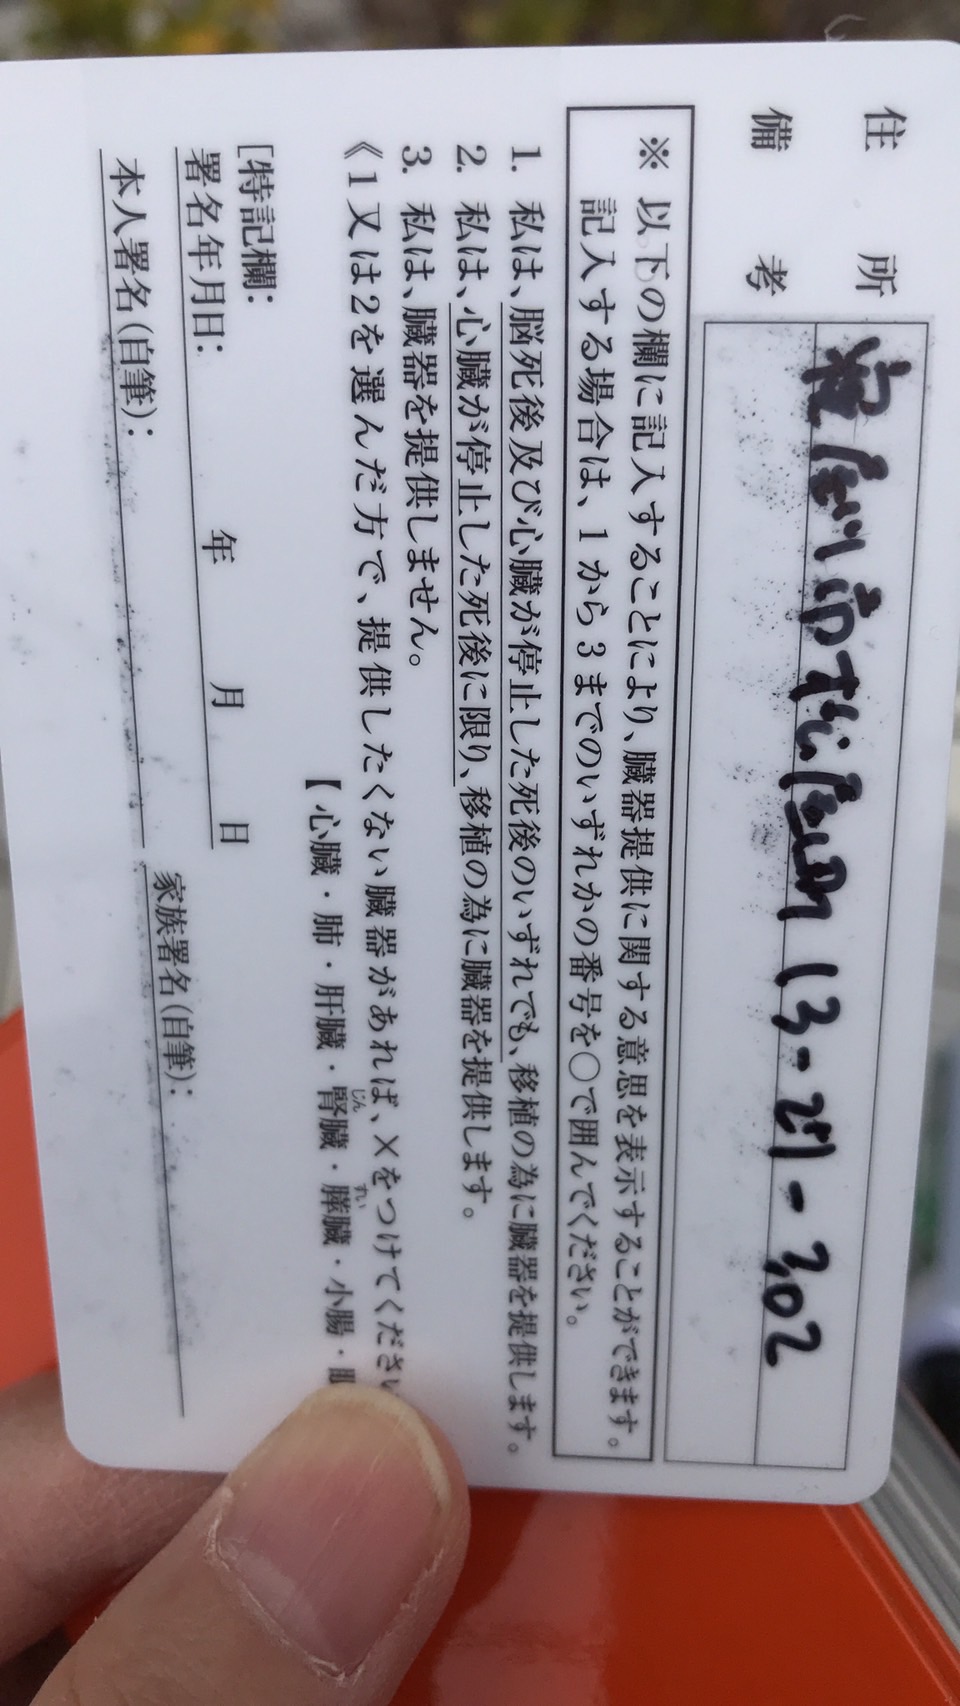 住所 市 13-21-302
備考
※ 以下の欄に記入することにより、臓器提供に関する意思を表示することができます。
記入する場合は、1から3までのいずれかの番号を○で囲んでください。
1. 私は、脳死後及び心臓が停止した死後のいずれでも、移植の為に臓器を提供します。
2. 私は、心臓が停止した死後に限り、移植の為に臓器を提供します。
3. 私は、臓器を提供しません。
《1又は2を選んだ方で、提供したくない臓器があれば、×をつけてください
【心臓・肺・肝臓・腎臓・膵臓・小腸・
じん すい
[特記欄:
署名年月日: 年 月 日
本人署名(自筆): 家族署名(自筆):